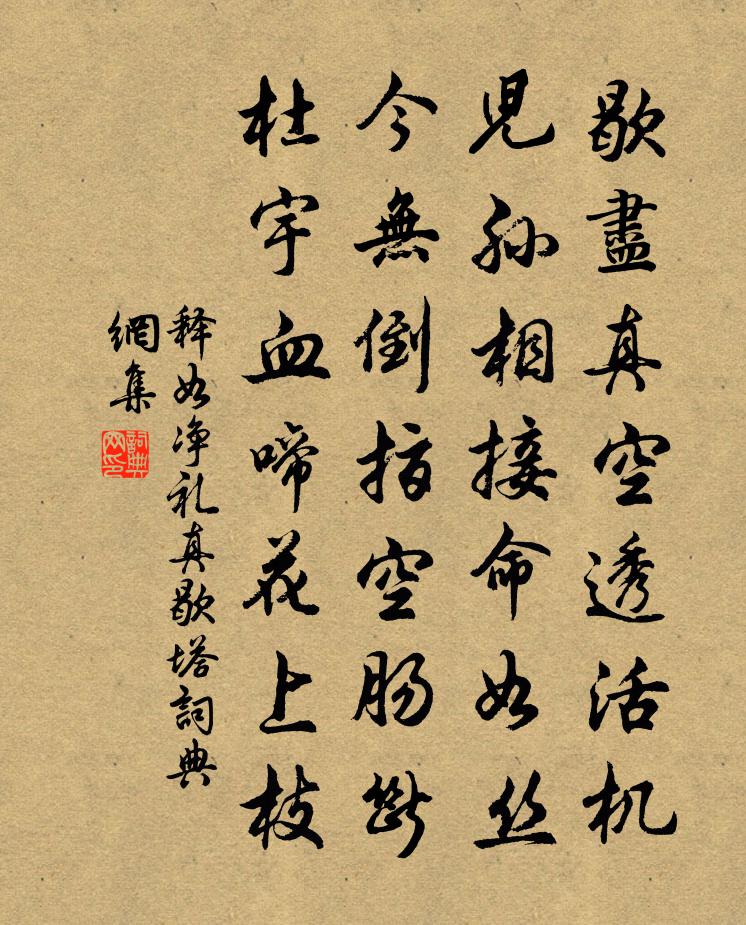 歇盡真空透活机
児孙相接命如丝
今無倒指空肠斷
杜宇血啼花上枝
释如净礼真歇塔詞典
網集
詞典
网印